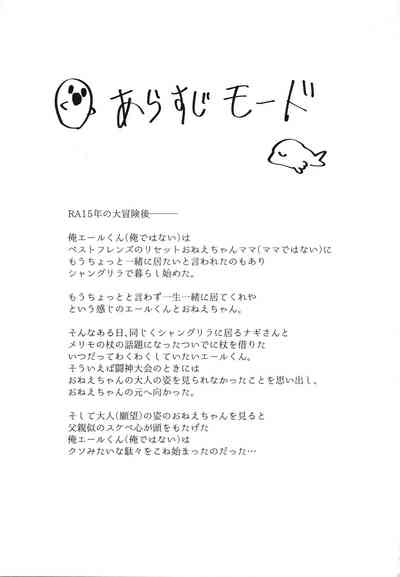 あらすじモード
RA15年の大冒険後―――
俺エールくん(俺ではない)は
ベストフレンズのリセットおねえちゃんママ(ママではない)に
もうちょっと一緒に居たいと言われたのもあり
シャングリラで暮らし始めた。
もうちょっとと言わず一生一緒に居てくれや
という感じのエールくんとおねえちゃん。
そんなある日、同じくシャングリラに居るナギさんと
メリモの杖の話題になったついでに杖を借りた
いつだってわくわくしていたいエールくん。
そういえば闘神大会のときには
おねえちゃんの大人の姿を見られなかったことを思い出し、
おねえちゃんの元へ向かった。
そして大人(願望)の姿のおねえちゃんを見ると
父親似のスケベ心が頭をもたげた
俺エールくん(俺ではない)は
クソみたいな駄々をこね始まったのだった…